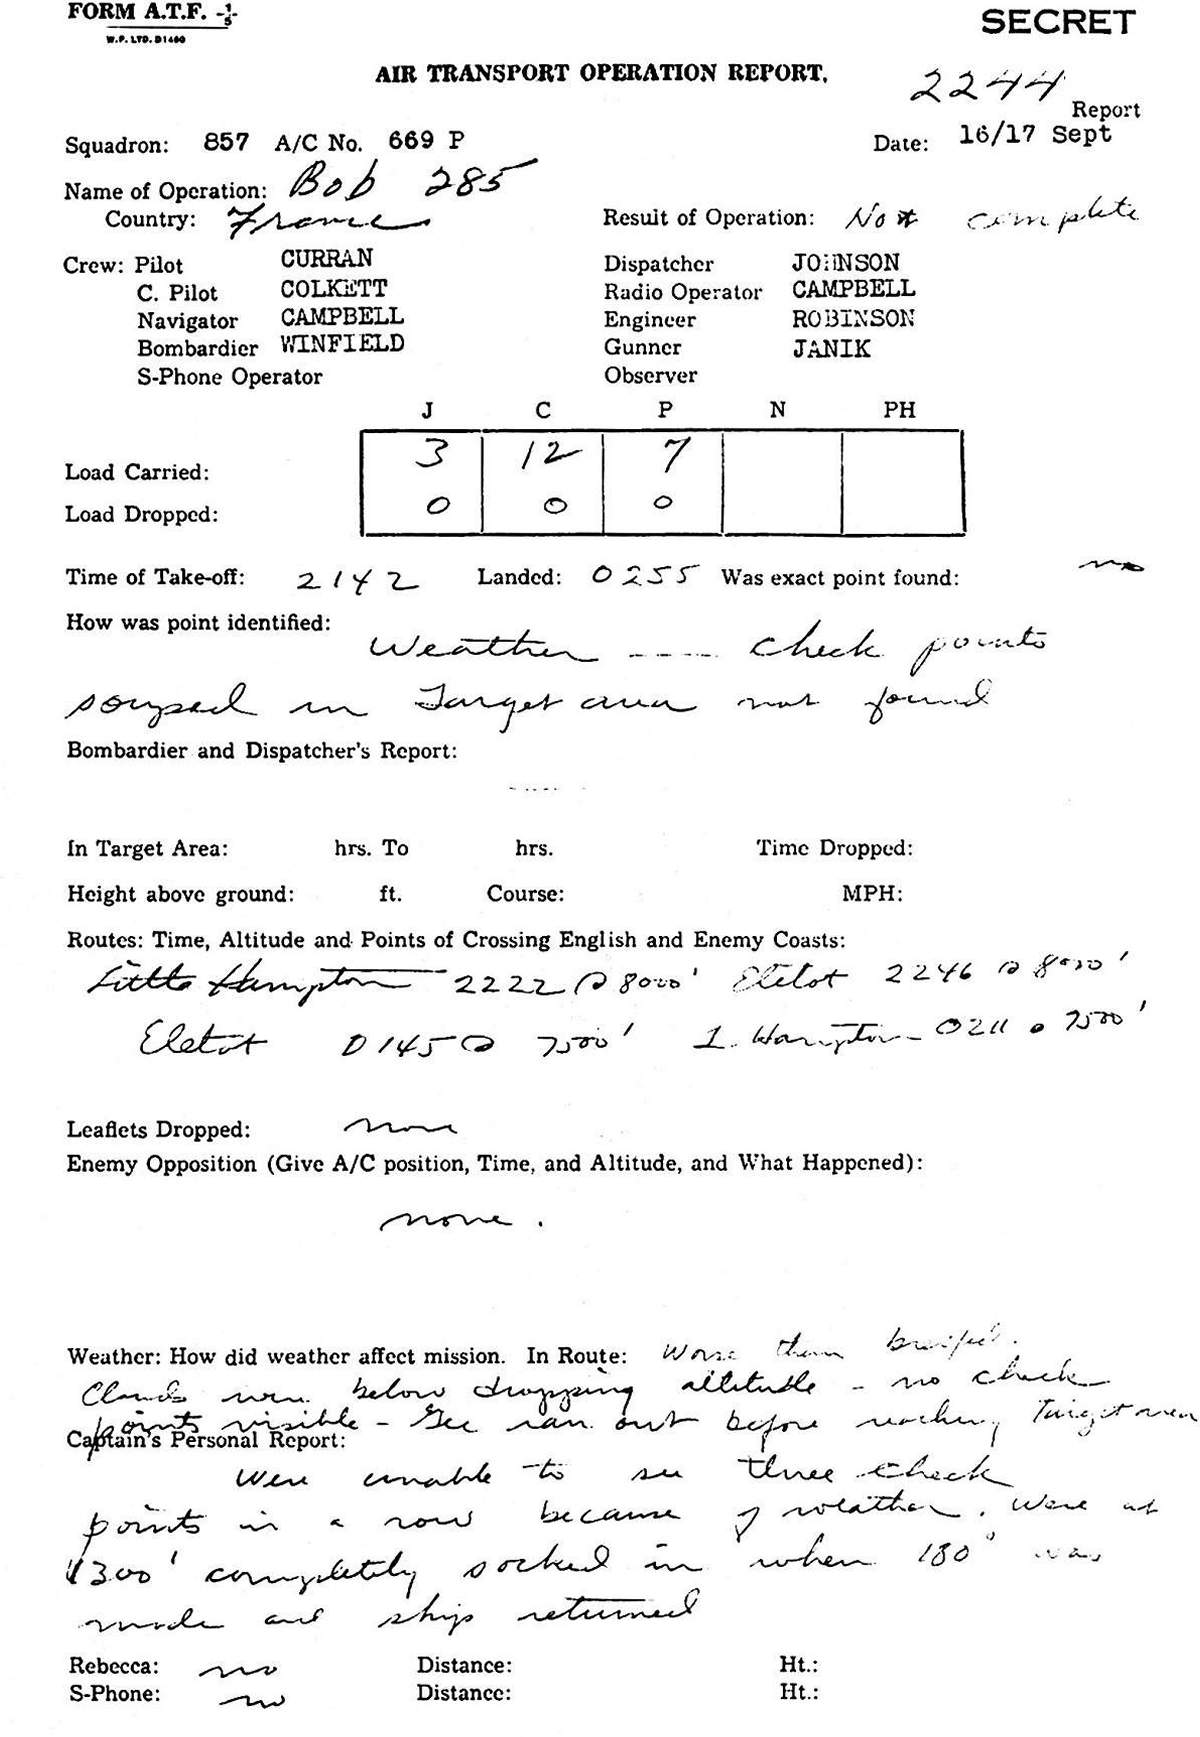 FORM A.T.F. -1/5-
W.P. LTD. D1460
SECRET
AIR TRANSPORT OPERATION REPORT.
2244
Report
Squadron: 857 A/C No. 669 P Date: 16/17 Sept
Name of Operation: Bob 285
Country: France Result of Operation: Not complete
Crew: Pilot CURRAN Dispatcher JOHNSON
C. Pilot COLKETT Radio Operator CAMPBELL
Navigator CAMPBELL Engineer ROBINSON
Bombardier WINFIELD Gunner JANIK
S-Phone Operator Observer
J C P N PH
Load Carried: 3 12 7
Load Dropped: 0 0 0
Time of Take-off: 2142 Landed: 0255 Was exact point found: no
How was point identified:
Weather ---- check points
souped in Target area not found
Bombardier and Dispatcher's Report:
-----
In Target Area: hrs. To hrs. Time Dropped:
Height above ground: ft. Course: MPH:
Routes: Time, Altitude and Points of Crossing English and Enemy Coasts:
Little Hampton 2222 @ 8000' Eletot 2246 @ 8000'
Eletot 0145 @ 7500' L. Hampton - 0211 @ 7500'
Leaflets Dropped: none
Enemy Opposition (Give A/C position, Time, and Altitude, and What Happened):
none.
Weather: How did weather affect mission. In Route: Worse than
Clouds were below dropping altitude - no check
points visible - Gee ran out before reaching Target area
Captain's Personal Report:
Were unable to see three check
points in a row because of weather. Were at
300' completely socked in when 180° was
made and ship returned
Rebecca: no Distance: Ht.:
S-Phone: no Distance: Ht.: